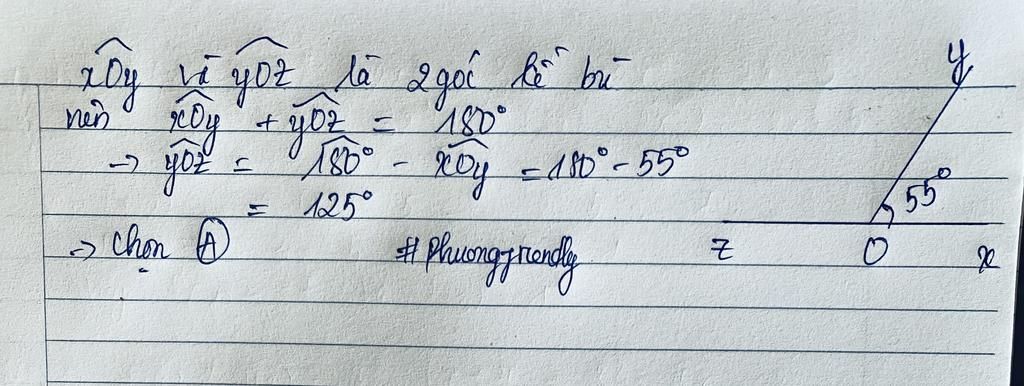 xOy và yOz là 2 góc kề bù
nên xOy + yOz = 180°
→ yOz = 180° - xOy = 180° - 55°
= 125°
⇒ Chọn Ⓐ #phuongfriendly
y
55°
z O x